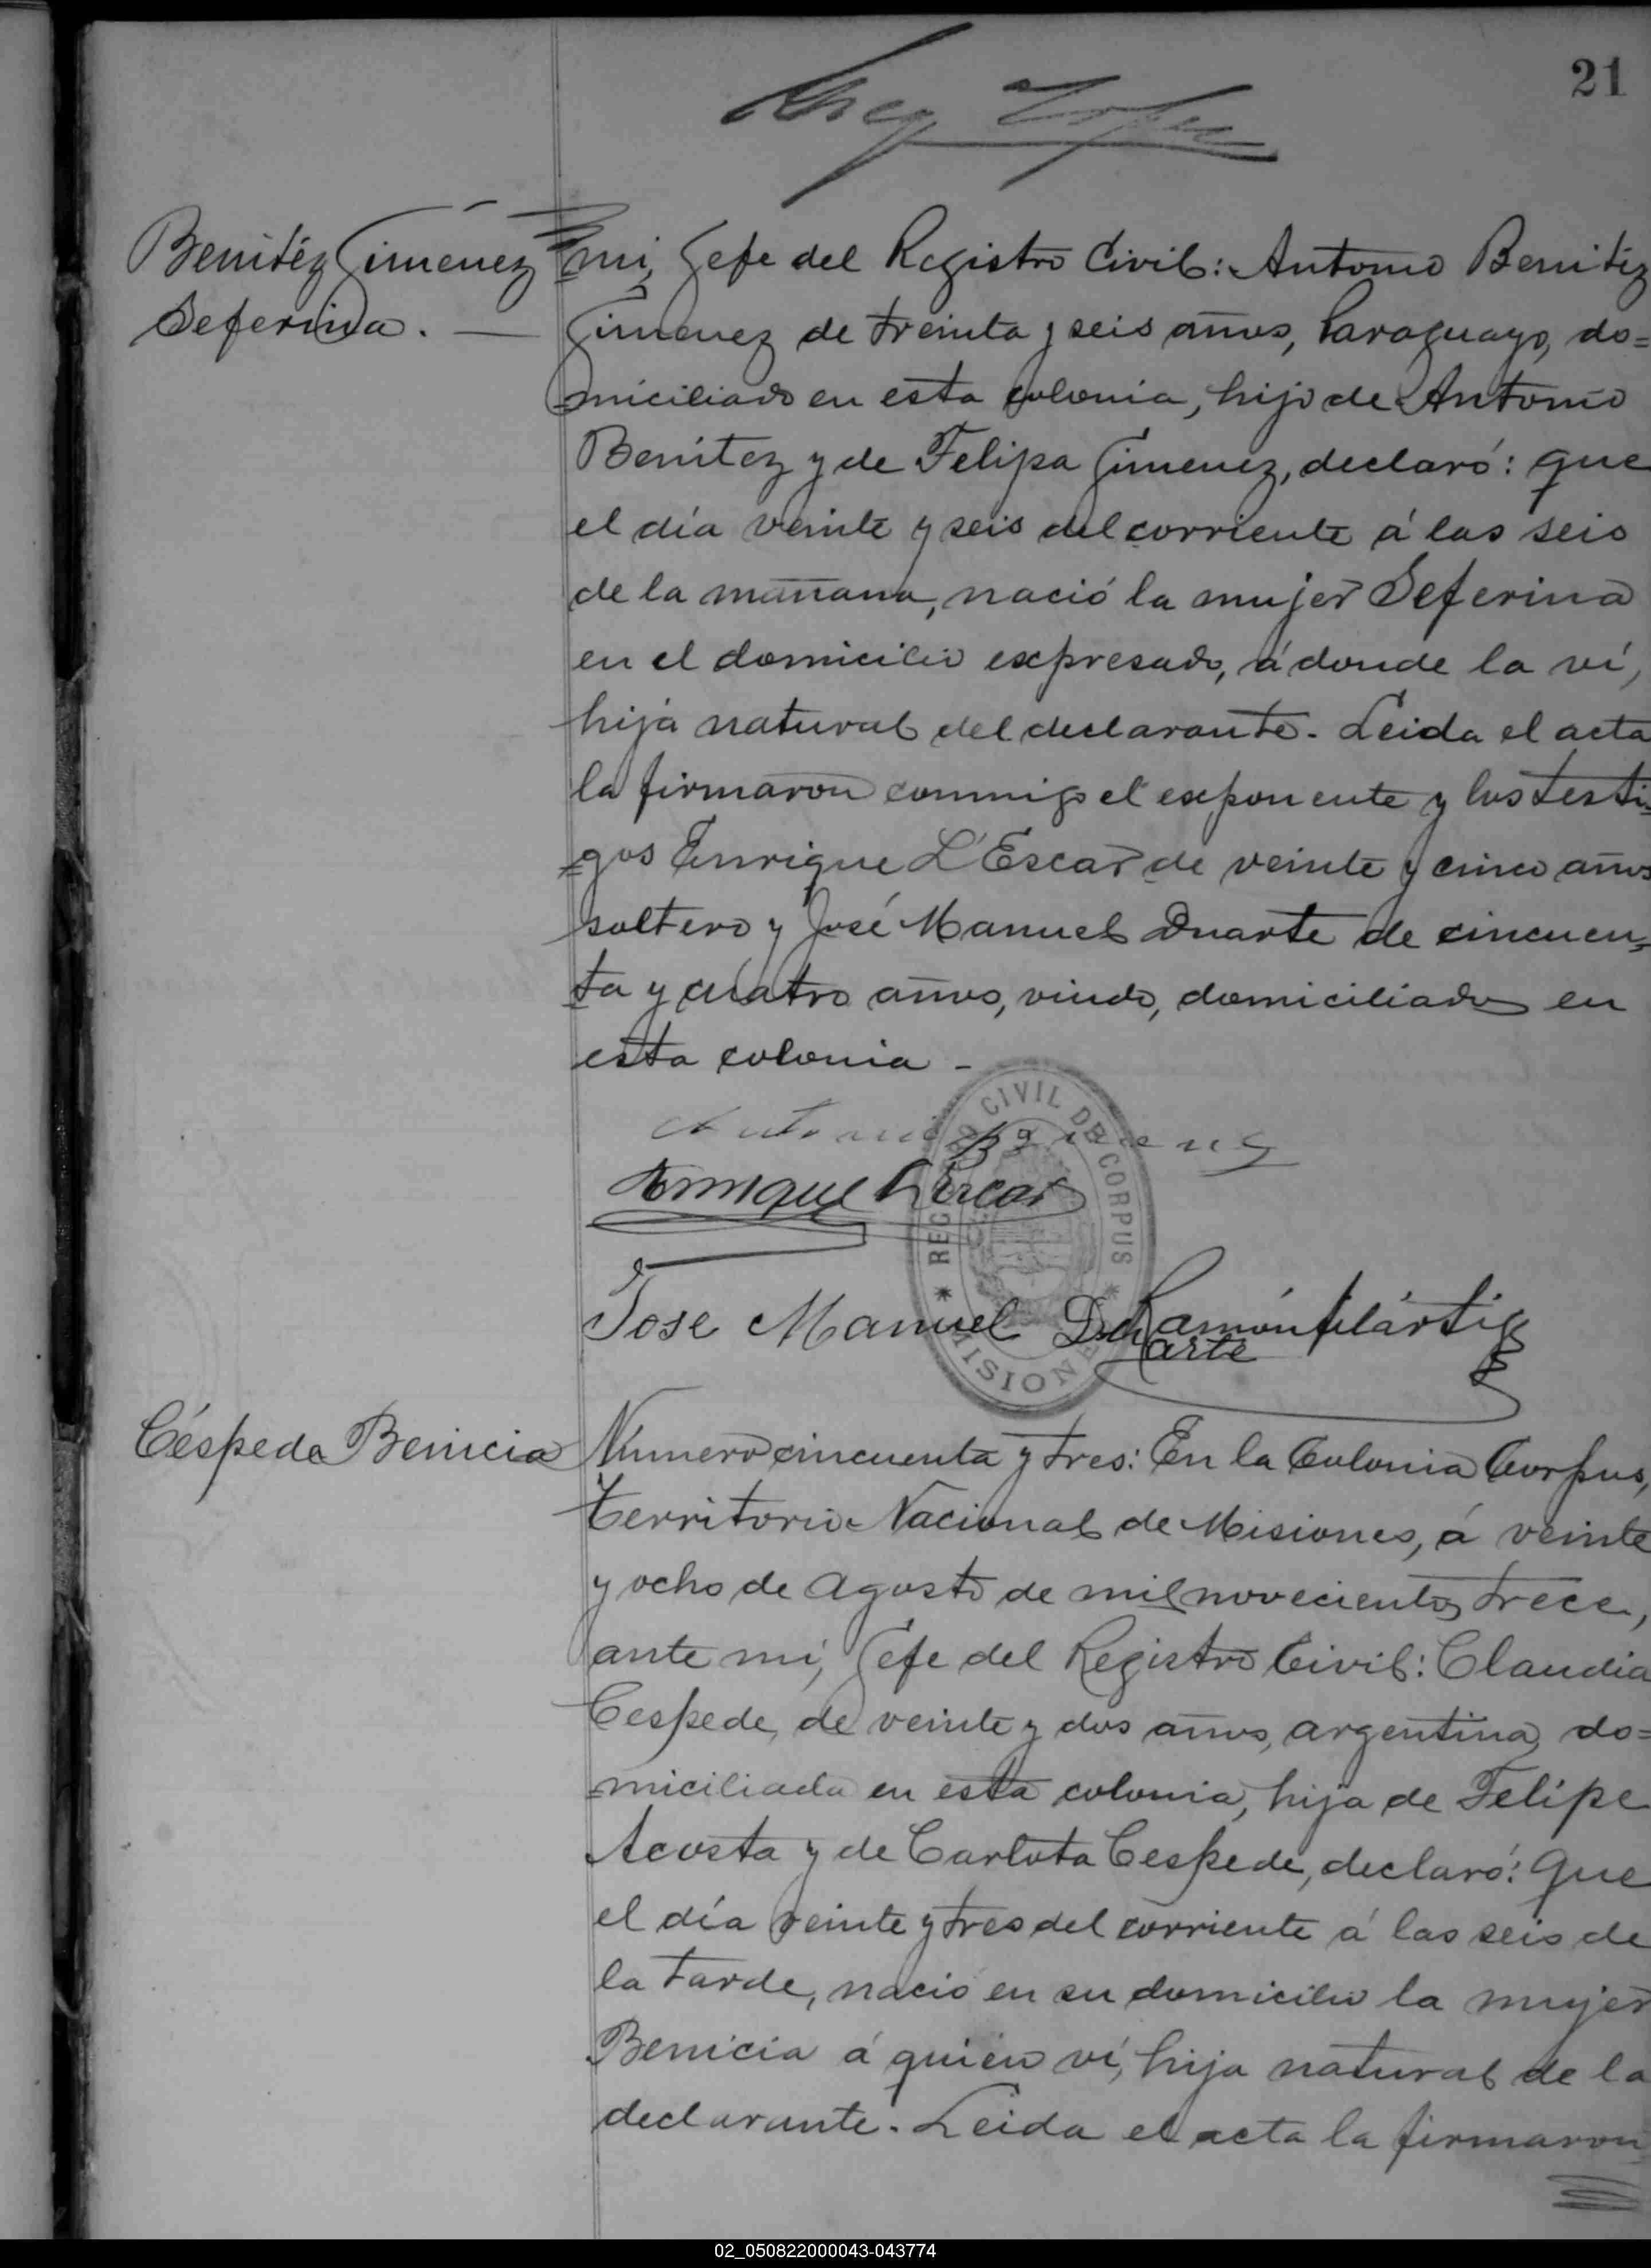 21
Benitéz Giménez
Seferina. —
mi, Gefe del Registro Civil: Antonio Benitéz
Gimenez de treinta y seis años, Paraguayo, do=
=miciliado en esta colonia, hijo de Antonio
Benítez y de Felipa Gimenez, declaró: que
el día veinte y seis del corriente á las seis
de la mañana, nació la mujer Seferina
en el domicilio expresado, á donde la ví,
hija natural del declarante. Leida el acta
la firmaron conmigo el exponente y los testi=
=gos Enrique L'Escar de veinte y cinco años
soltero y José Manuel Duarte de cincuen=
ta y cuatro años, viudo, domiciliados en
esta colonia -
Antonio
REGISTRO CIVIL DE CORPUS
* MISIONES *
Enrique L'Escar
Jose Manuel Duarte
Ramón Mártiz
Céspede Benicia
Número cincuenta y tres: En la Colonia Corpus,
Territorio Nacional de Misiones, á veinte
y ocho de Agosto de mil novecientos trece,
ante mí, Gefe del Registro Civil: Claudia
Cespede, de veinte y dos años, argentina, do=
=miciliada en esta colonia, hija de Felipe
Acosta y de Carlota Cespede, declaró: Que
el día veinte y tres del corriente á las seis de
la tarde, nació en su domicilio la mujer
Benicia á quién ví, hija natural de la
declarante. Leida el acta la firmaron
02_050822000043-043774